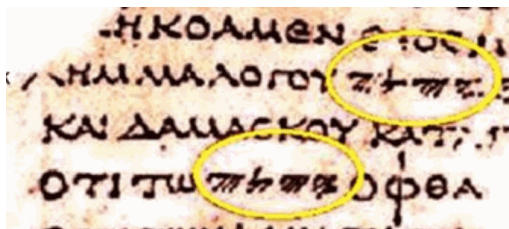 ΗΚΟΑΜΕΝ
ΛΗΜΜΑ ΛΟΓΟΥ 𐤉𐤄𐤅𐤄
ΚΑΙ ΔΑΜΑΣΚΟΥ ΚΑΤΑΠ
ΟΤΙ ΤΩ 𐤉𐤄𐤅𐤄 ΟΦΘΑ